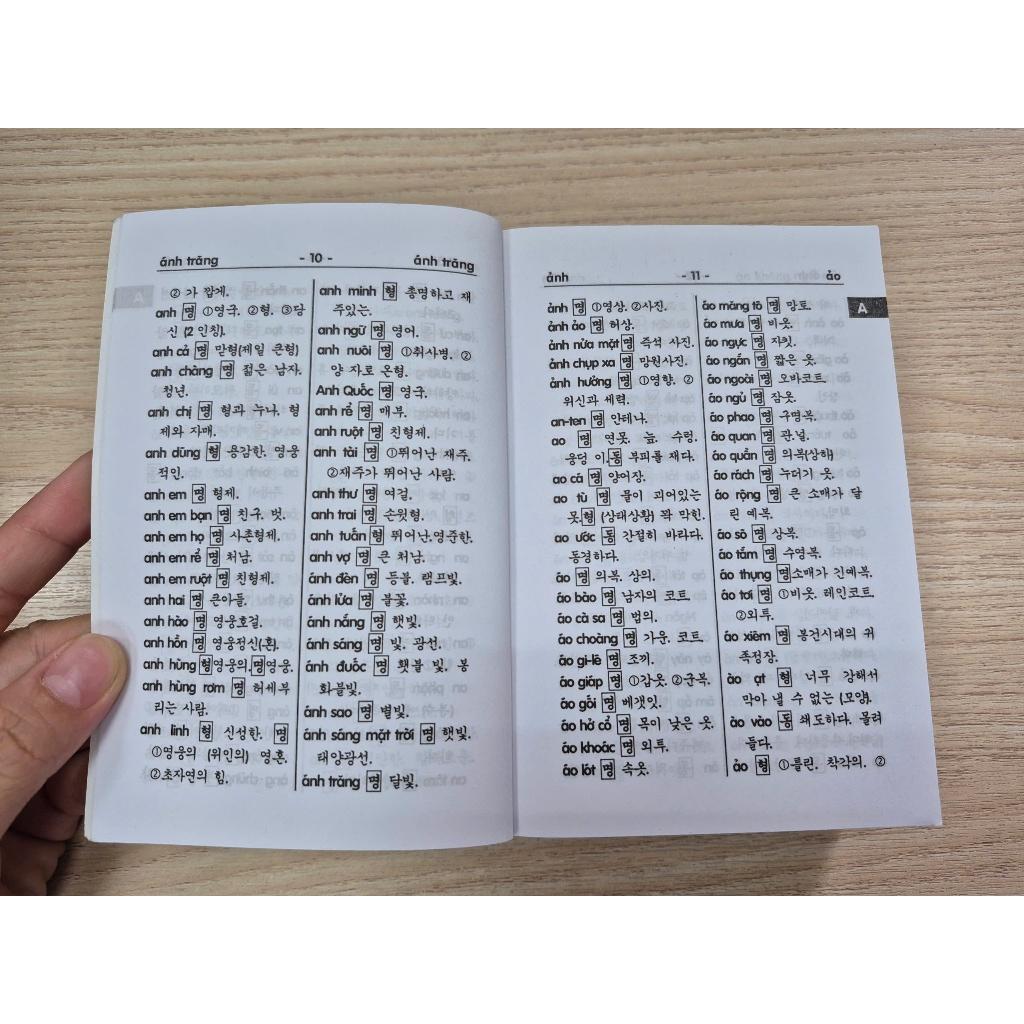 ánh trăng - 10 - ánh trăng
② 가 깝게.
anh 명 ①영국. ②형. ③당
신 (2 인칭).
anh cả 명 맏형(제일 큰형)
anh chàng 명 젊은 남자.
청년.
anh chị 명 형과 누나. 형
제와 자매.
anh dũng 형 용감한. 영웅
적인.
anh em 명 형제.
anh em bạn 명 친구. 벗.
anh em họ 명 사촌형제.
anh em rể 명 처남.
anh em ruột 명 친형제.
anh hai 명 큰아들.
anh hào 명 영웅호걸.
anh hồn 명 영웅정신(혼).
anh hùng 형영웅의.명영웅.
anh hùng rơm 명 허세부
리는 사람.
anh linh 형 신성한. 명
①영웅의 (위인의) 영혼.
②초자연의 힘.
anh minh 형 총명하고 재
주있는.
anh ngữ 명 영어.
anh nuôi 명 ①취사병. ②
양 자로 온형.
Anh Quốc 명 영국.
anh rể 명 매부.
anh ruột 명 친형제.
anh tài 명 ①뛰어난 재주.
②재주가 뛰어난 사람.
anh thư 명 여걸.
anh trai 명 손윗형.
anh tuấn 형 뛰어난.영준한.
anh vợ 명 큰 처남.
ánh đèn 명 등불. 램프빛.
ánh lửa 명 불꽃.
ánh nắng 명 햇빛.
ánh sáng 명 빛. 광선.
ánh đuốc 명 횃불 빛. 봉
화불빛.
ánh sao 명 별빛.
ánh sáng mặt trời 명 햇빛.
태양광선.
ánh trăng 명 달빛.
ảnh - 11 - ảo
ảnh 명 ①영상. ②사진.
ảnh ảo 명 허상.
ảnh nửa mặt 명 즉석 사진.
ảnh chụp xa 명 망원사진.
ảnh hưởng 명 ①영향. ②
위신과 세력.
an-ten 명 안테나.
ao 명 연못. 늪. 수렁.
웅덩 이.동 부피를 재다.
ao cá 명 양어장.
ao tù 명 물이 괴어있는
못.형 (상태상황) 꽉 막힌.
ao ước 동 간절히 바라다.
동경하다.
áo 명 의복. 상의.
áo bào 명 남자의 코트.
áo cà sa 명 법의.
áo choàng 명 가운. 코트.
áo gi-lê 명 조끼.
áo giáp 명 ①갑옷. ②군복.
áo gối 명 베갯잇.
áo hở cổ 명 목이 낮은 옷.
áo khoác 명 외투.
áo lót 명 속옷.
áo măng tô 명 망토.
áo mưa 명 비옷.
áo ngực 명 자킷.
áo ngắn 명 짧은 옷.
áo ngoài 명 오바코트.
áo ngủ 명 잠옷.
áo phao 명 구명복.
áo quan 명 관.널.
áo quần 명 의복(상하)
áo rách 명 누더기 옷.
áo rộng 명 큰 소매가 달
린 예복.
áo sô 명 상복.
áo tắm 명 수영복.
áo thụng 명소매가 긴예복.
áo tơi 명 ①비옷. 레인코트.
②외투.
áo xiêm 명 봉건시대의 귀
족정장.
ào ạt 형 너무 강해서
막아 낼 수 없는 (모양).
ào vào 동 쇄도하다. 몰려
들다.
ảo 형 ①틀린. 착각의. ②
A